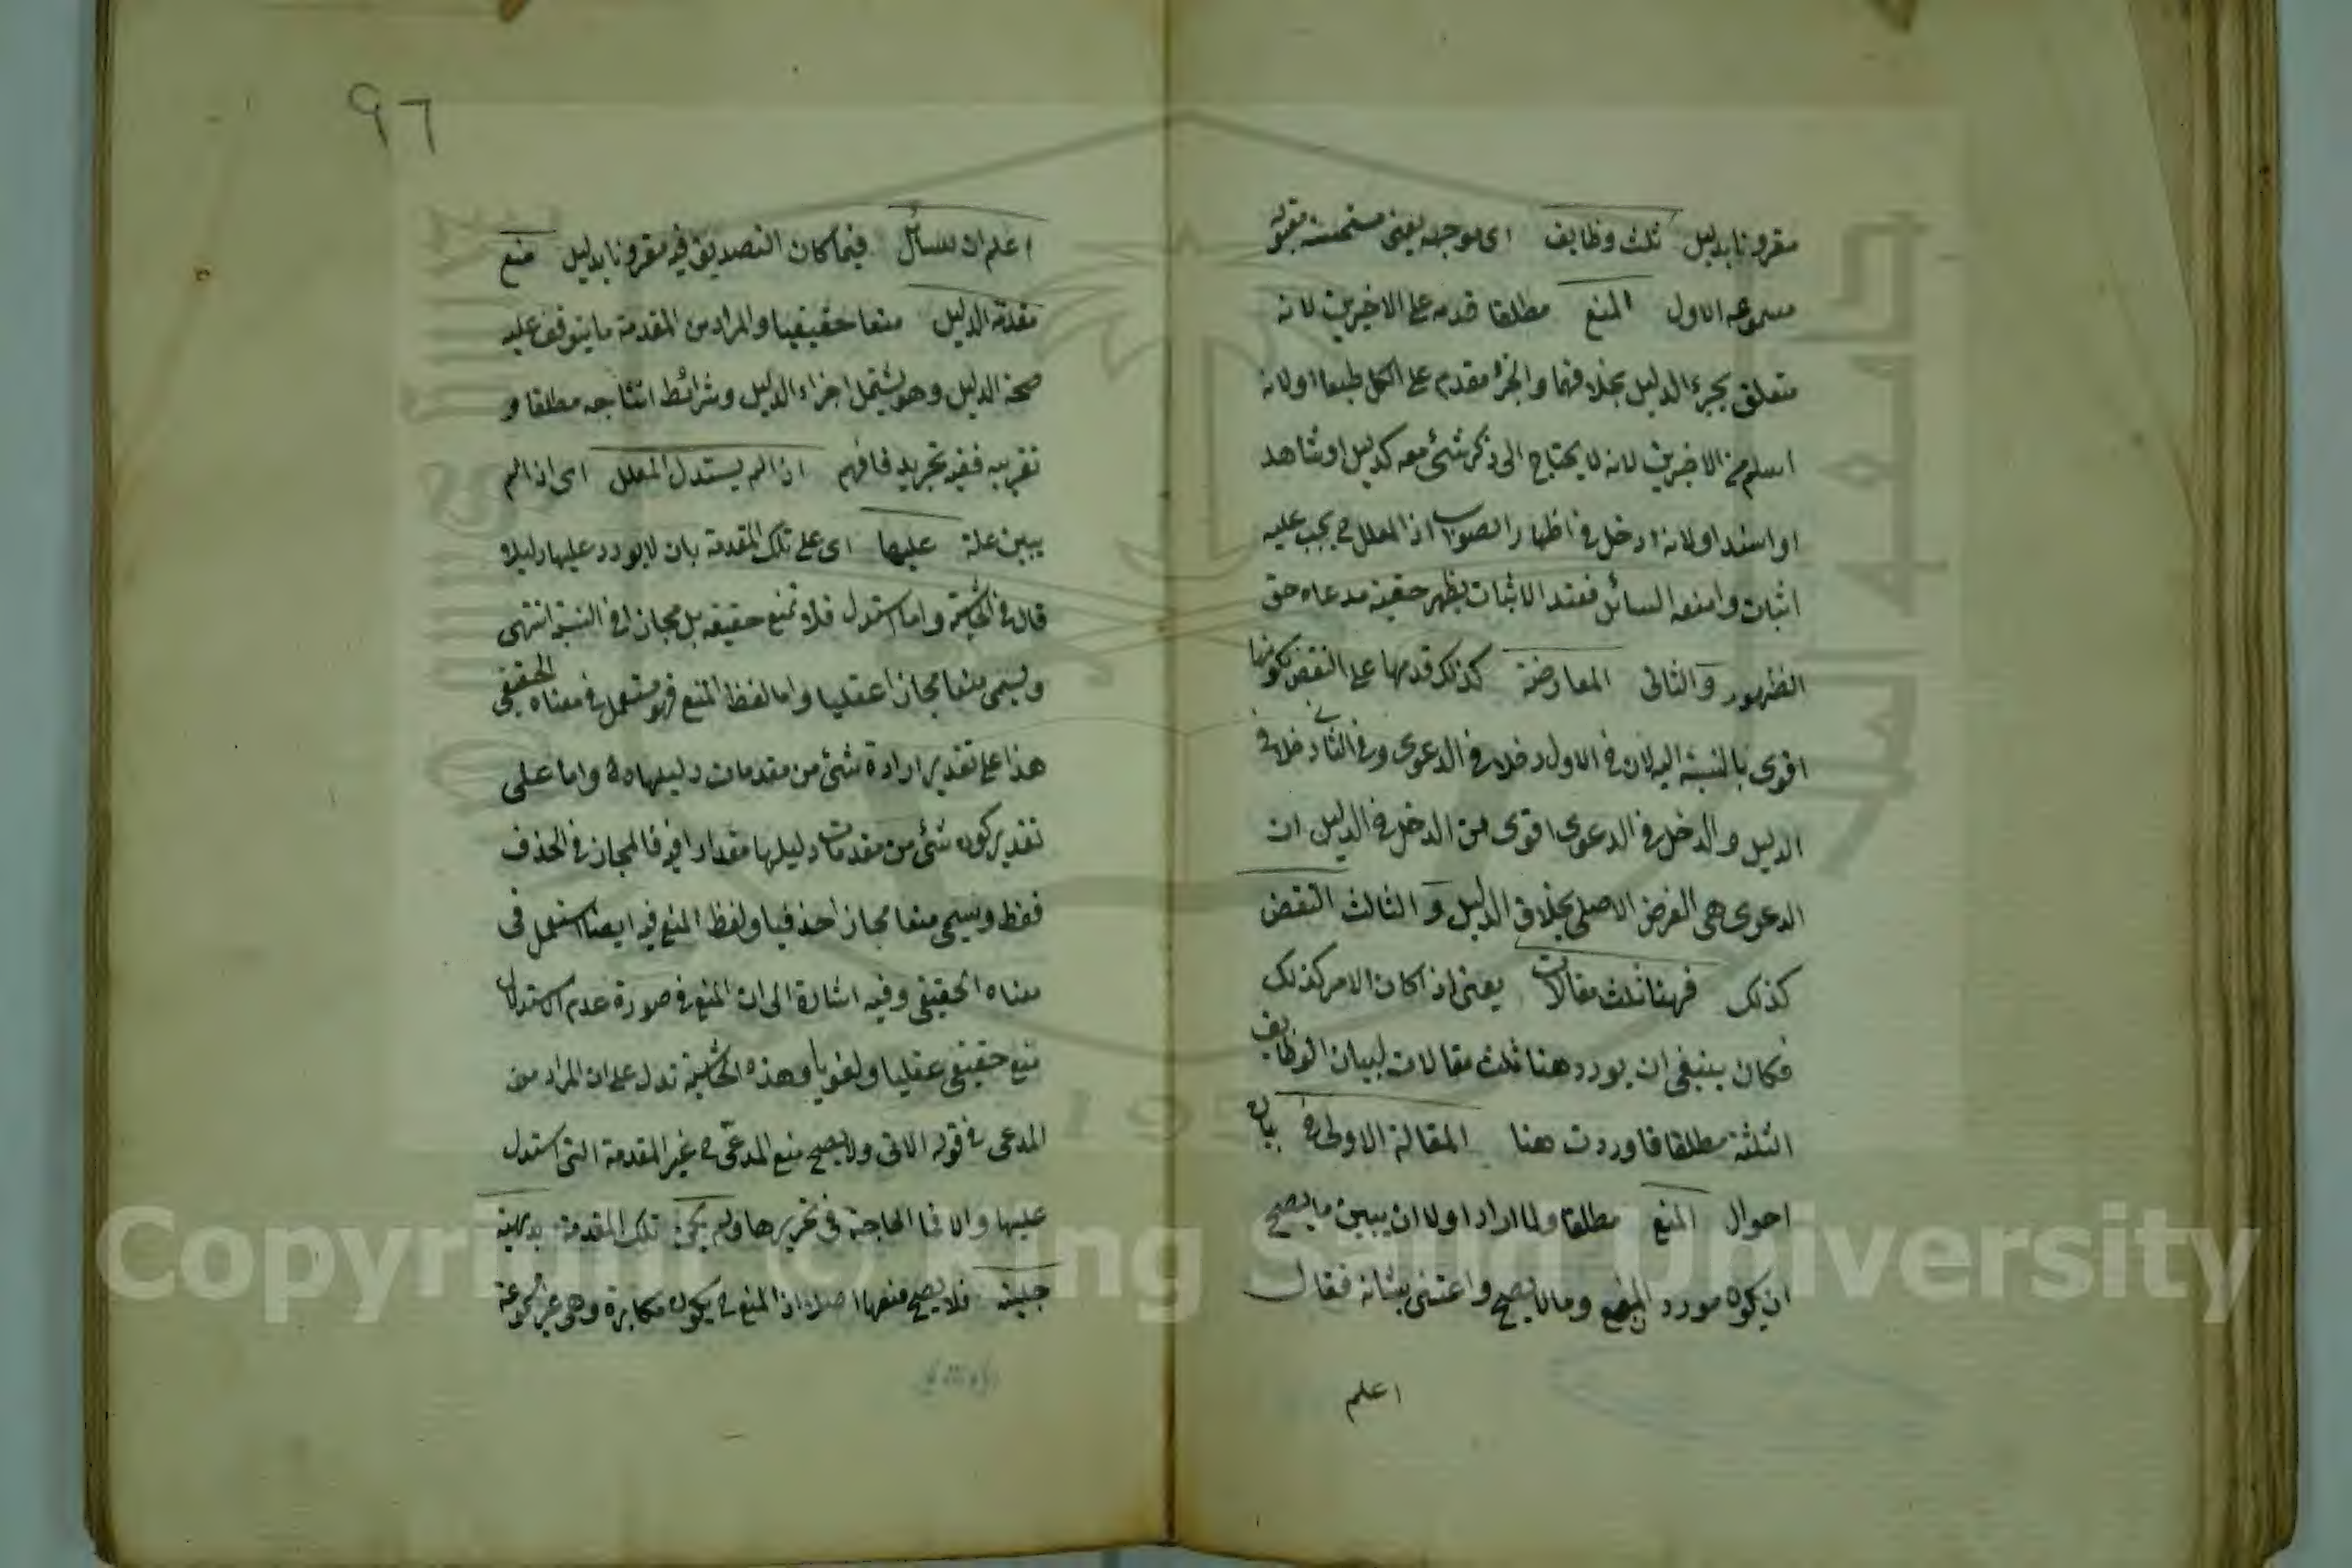 مقرونا بدليل ثلث وظايف اى موجهه يعنى مستحسنة مقبولة
مسموعه الاول المنع مطلقا قدمه على الاخيرين لانه
متعلق بجزء الدليل بخلافهما والجزء مقدم على الكل طبعا اولانه
اسلم من الاخيرين لانه لا يحتاج الى ذكر شئ معه كدليل او شاهد
او اسند اولانه ادخل فى اظهار الصواب اذ المعلل ح يجب عليه
اثبات ما منعه السائل فعند الاثبات يظهر حقية مدعاه حق
الظهور والثانى المعارضة كذلك قدمها على النقض لكونها
اقوى بالنسبة اليه لان فى الاول دخلا فى الدعوى وفى الثانى دخلا فى
الدليل والدخل فى الدعوى اقوى من الدخل فى الدليل لان
الدعوى هى الغرض الاصلى بخلاف الدليل والثالث النقض
كذلك فههنا ثلث مقالات يعنى اذا كان الامر كذلك
فكان ينبغى ان يورد هنا ثلث مقالات لبيان الوظايف
الثلثة مطلقا فاوردت هنا المقالة الاولى فى بيان
احوال المنع مطلقا ولما اراد اولا ان يبين ما يصح
ان يكون مورد المنع وما لا يصح واعتنى بشانه فقال
اعلم
٩٦
اعلم ان للسائل فيما كان التصديق فيه مقرونا بدليل منع
مقدمة الدليل منعا حقيقيا والمراد من المقدمة ما يتوقف عليه
صحة الدليل وهو يشتمل اجزاء الدليل وشرائط انتاجه مطلقا و
تقريبه ففيه تجريد فافهم اذا لم يستدل المعلل اى اذا لم
يبين علة عليها اى على تلك المقدمة بان لا يورد عليها دليلا
قال فى الحاشية واما ما استدل فلا تمنع حقيقة بل مجازا فى النسبة انتهى
ويسمى منعا مجازا عقليا واما لفظ المنع فهو مستعمل فى معناه الحقيقى
هذا على تقدير ارادة شئ من مقدمات دليلها واما على
تقدير كون شئ من مقدمات دليلها مقدارا فيه فالمجاز فى الحذف
فقط ويسمى منعا مجازا حذفيا ولفظ المنع فيه ايضا استعمل فى
معناه الحقيقى وفيه اشارة الى ان المنع فى صورة عدم الاستدلال
منع حقيقى عقليا ولغويا وهذه الحاشية تدل على ان المراد من
المدعى فى قوله الاتى ولا يصح منع المدعى ح غير المقدمة التى استدل
عليها والا فما الحاجة فى تحريرها ولم يكن تلك المقدمة بديهية
جلية فلا يصح منعها اصلا اذ المنع ح يكون مكابرة وهو غير مسموعة